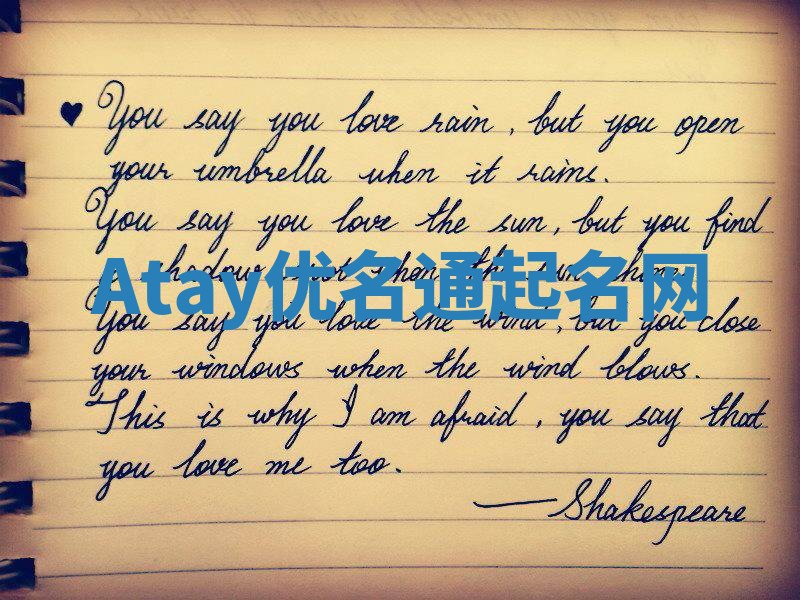 ♥ You say you love rain, but you open
your umbrella when it rains.
You say you love the sun, but you find
a shadow spot when the sun shines.
Atay优名通起名网
You say you love the wind, but you close
your windows when the wind blows.
This is why I am afraid, you say that
you love me too.
—Shakespeare